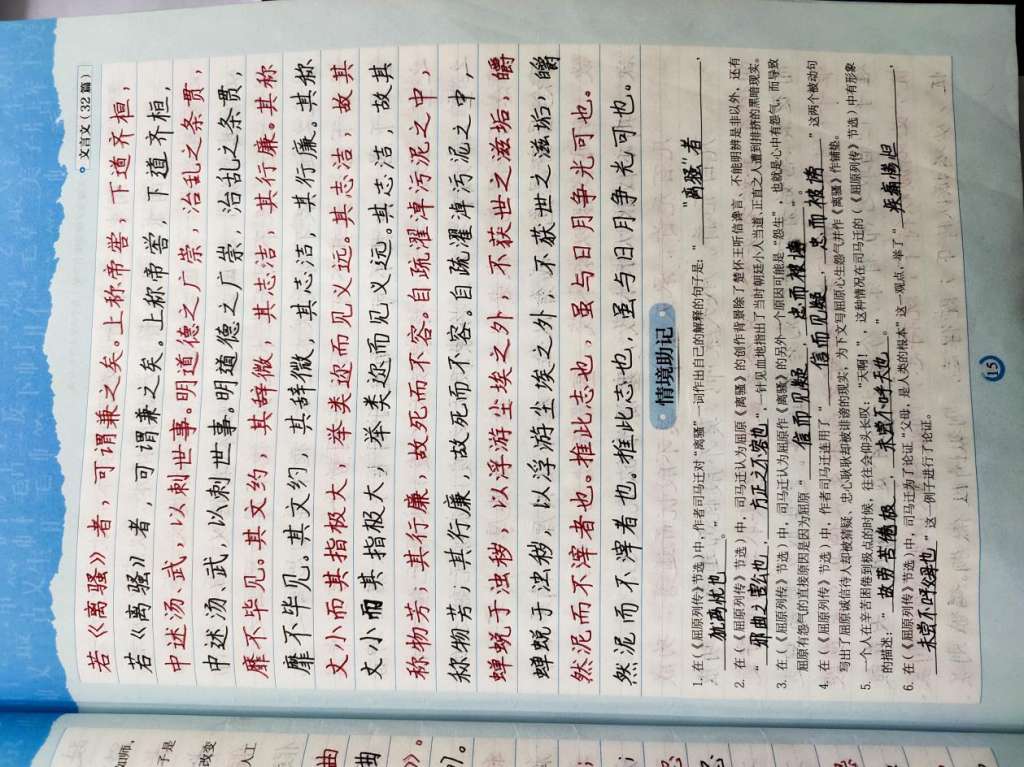 文言文（32篇）
若《离骚》者，可谓兼之矣。上称帝喾，下道齐桓，
若《离骚》者，可谓兼之矣。上称帝喾，下道齐桓，
中述汤、武，以刺世事。明道德之广崇，治乱之条贯，
中述汤、武，以刺世事。明道德之广崇，治乱之条贯，
靡不毕见。其文约，其辞微，其志洁，其行廉。其称
靡不毕见。其文约，其辞微，其志洁，其行廉。其称
文小而其指极大，举类迩而见义远。其志洁，故其
文小而其指极大，举类迩而见义远。其志洁，故其
称物芳；其行廉，故死而不容。自疏濯淖污泥之中，
称物芳；其行廉，故死而不容。自疏濯淖污泥之中，
蝉蜕于浊秽，以浮游尘埃之外，不获世之滋垢，皭
蝉蜕于浊秽，以浮游尘埃之外，不获世之滋垢，皭
然泥而不滓者也。推此志也，虽与日月争光可也。
然泥而不滓者也。推此志也，虽与日月争光可也。
情境助记
1. 在《〈屈原列传〉节选》中，作者司马迁对“离骚”一词作出自己的解释的句子是：“ “离骚”者 ，
犹离忧也 。”
2. 在《〈屈原列传〉节选》中，司马迁认为屈原《离骚》的创作背景除了楚怀王听信谗言、不能明辨是非以外，还有
“ 邪曲之害公也 ， 方正之不容也 ”，一针见血地指出了当时朝廷小人当道、正直之人遭到排挤的黑暗现实。
3. 在《〈屈原列传〉节选》中，司马迁认为屈原作《离骚》的另外一个原因可能是“怨生”，也就是心中有怨气，而导致
屈原有怨气的直接原因是因为屈原“ 信而见疑 ， 忠而被谤 ”。
4. 在《〈屈原列传〉节选》中，作者司马迁通过用了“ 信而见疑 ， 忠而被谤 ”这两个被动句
写出了屈原诚信待人却被猜疑、忠心耿耿却被诽谤的现实，为下文写屈原心生怨气并作《离骚》作铺垫。
5. 一个人在辛苦困倦到极点的时候，往往会仰头长叹：“天啊！”，这种情况在司马迁的《〈屈原列传〉节选》中有形象
的描述：“ 故劳苦倦极 ， 未尝不呼天也 。”
6. 在《〈屈原列传〉节选》中，司马迁为了论证“父母，是人类的根本”这一观点，举了“ 疾痛惨怛 ，
未尝不呼父母也 ”这一例子进行了论证。
15